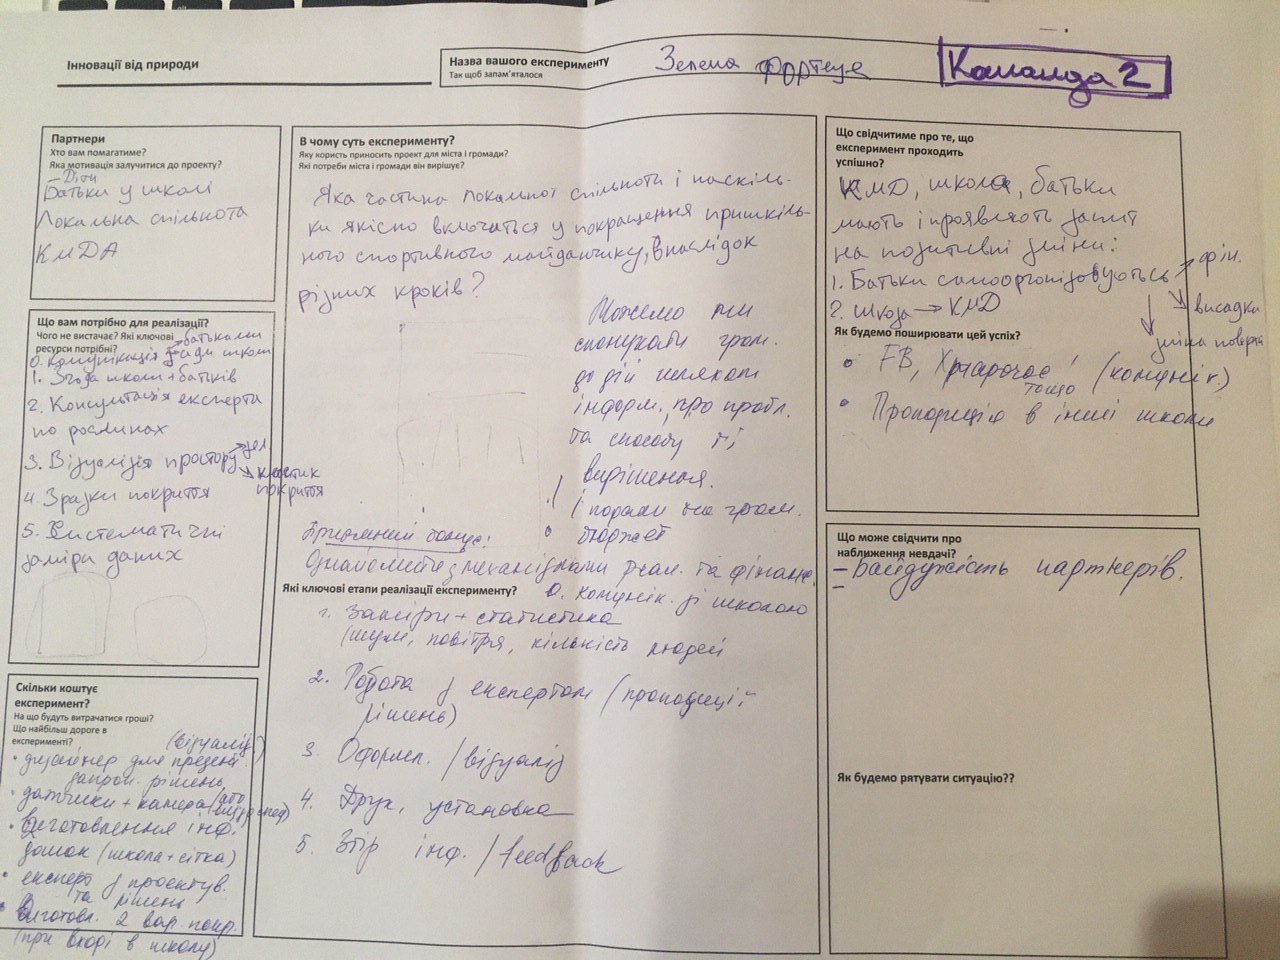 Інновації від природи
Назва вашого експерименту
Так щоб запам'яталося
Зелена фортеця
Команда 2
Партнери
Хто вам помагатиме?
Яка мотивація залучитися до проекту?
– Діти
Батьки у школі
Локальна спільнота
КМДА
Що вам потрібно для реалізації?
Чого не вистачає? Які ключові
ресурси потрібні?
0. Комунікація з → батьками
→ адм школи
1. Згода школи + батьків
2. Консультація експерта
по рослинах
3. Візуалізія простору → зел
↘ клаптик
покриття
4. Зразки покриття
5. Систематичні
заміри даних
Скільки коштує
експеримент?
На що будуть витрачатися гроші?
Що найбільш дороге в
експерименті?
(візуаліз.)
• дизайнер для презент.
запроп. рішень
• датчики + камера (або
• виготовлення інф.
дошок (школа + сітка)
• експерт з проєктув.
та рішень
• виготовл. 2 вар. покр.
(при вході в школу)
В чому суть експерименту?
Яку користь приносить проект для міста і громади?
Які потреби міста і громади він вирішує?
Яка частина локальної спільноти і наскіль-
ки якісно включаться у покращення пришкіль-
ного спортивного майданчику, внаслідок
різних кроків?
Можемо ми
спонукати гром.
до дій шляхом
інформ. про пробл.
та способу її
вирішення.
і подали на гром.
бюджет
Приємний бонус:
Ознайомити з механізмами реал. та фінанс.
Які ключові етапи реалізації експерименту?
0. комунік. зі школою
1. Заміри + статистика
(шуми, повітря, кількість людей
2. Робота з експертом (пропозиції
рішень)
3. Оформл. / візуаліз
4. Друк, установка
5. Збір інф. / feedback
Що свідчитиме про те, що
експеримент проходить
успішно?
КМД, школа, батьки
мають і проявляють запит
на позитивні зміни:
1. Батьки самоорганізовуються → фін.
↘ висадки
↓ зміна поверхні
2. школа → КМД
Як будемо поширювати цей успіх?
• FB, Хмарочос, (комунік.)
тощо
• Пропозиція в інші школи
Що може свідчити про
наближення невдачі?
– Байдужість партнерів.
–
Як будемо рятувати ситуацію??